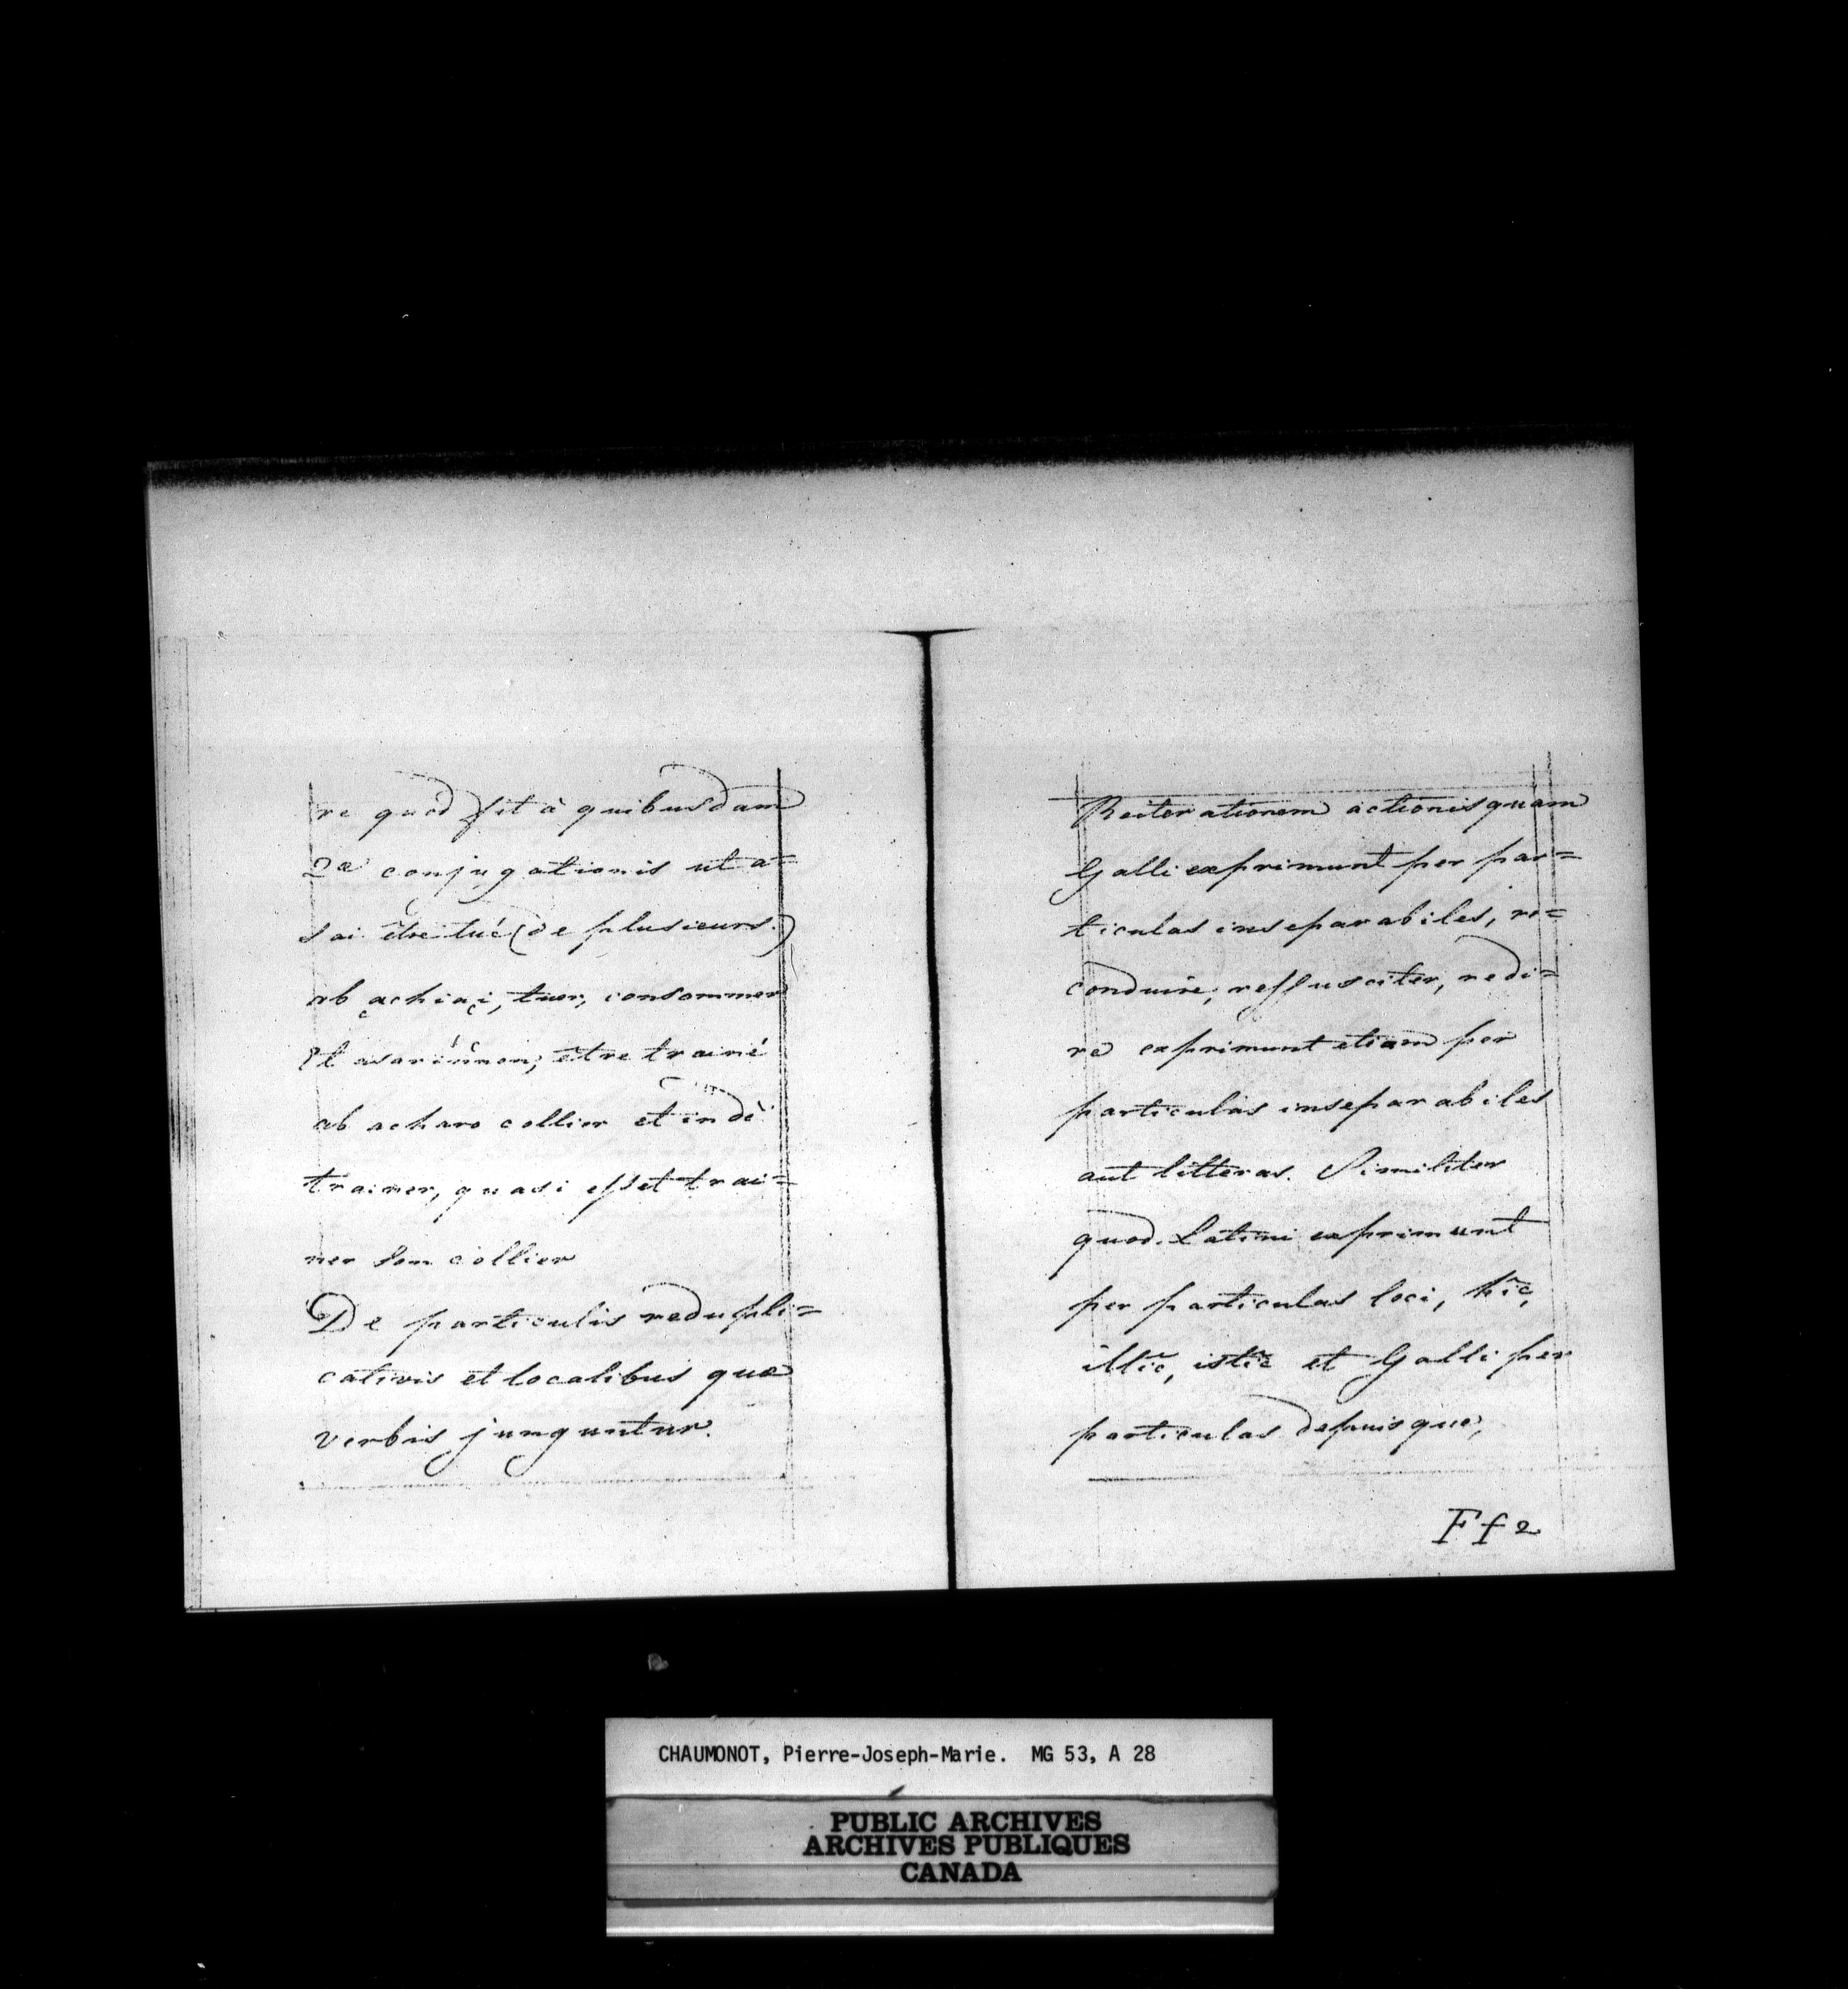 re quod fit à quibusdam
2æ conjugationis ut a=
sai être tué (de plusieurs.)
ab achiai, tuer, consommer
et asarinnon, être trainé
ab acharo collier et indè
trainer, quasi esset trai=
ner son collier
De particulis redupli=
cativis et localibus quæ
verbis junguntur.
Reiterationem actionis quam
Galli exprimunt per par=
ticulas inseparabiles, re=
conduire, ressusciter, redi=
re exprimunt etiam per
particulas inseparabiles
aut litteras. Similiter
quod Latini exprimunt
per particulas loci, hîc,
illîc, istîc et Galli per
particulas depuis que,
Ff2
CHAUMONOT, Pierre-Joseph-Marie. MG 53, A 28
PUBLIC ARCHIVES
ARCHIVES PUBLIQUES
CANADA